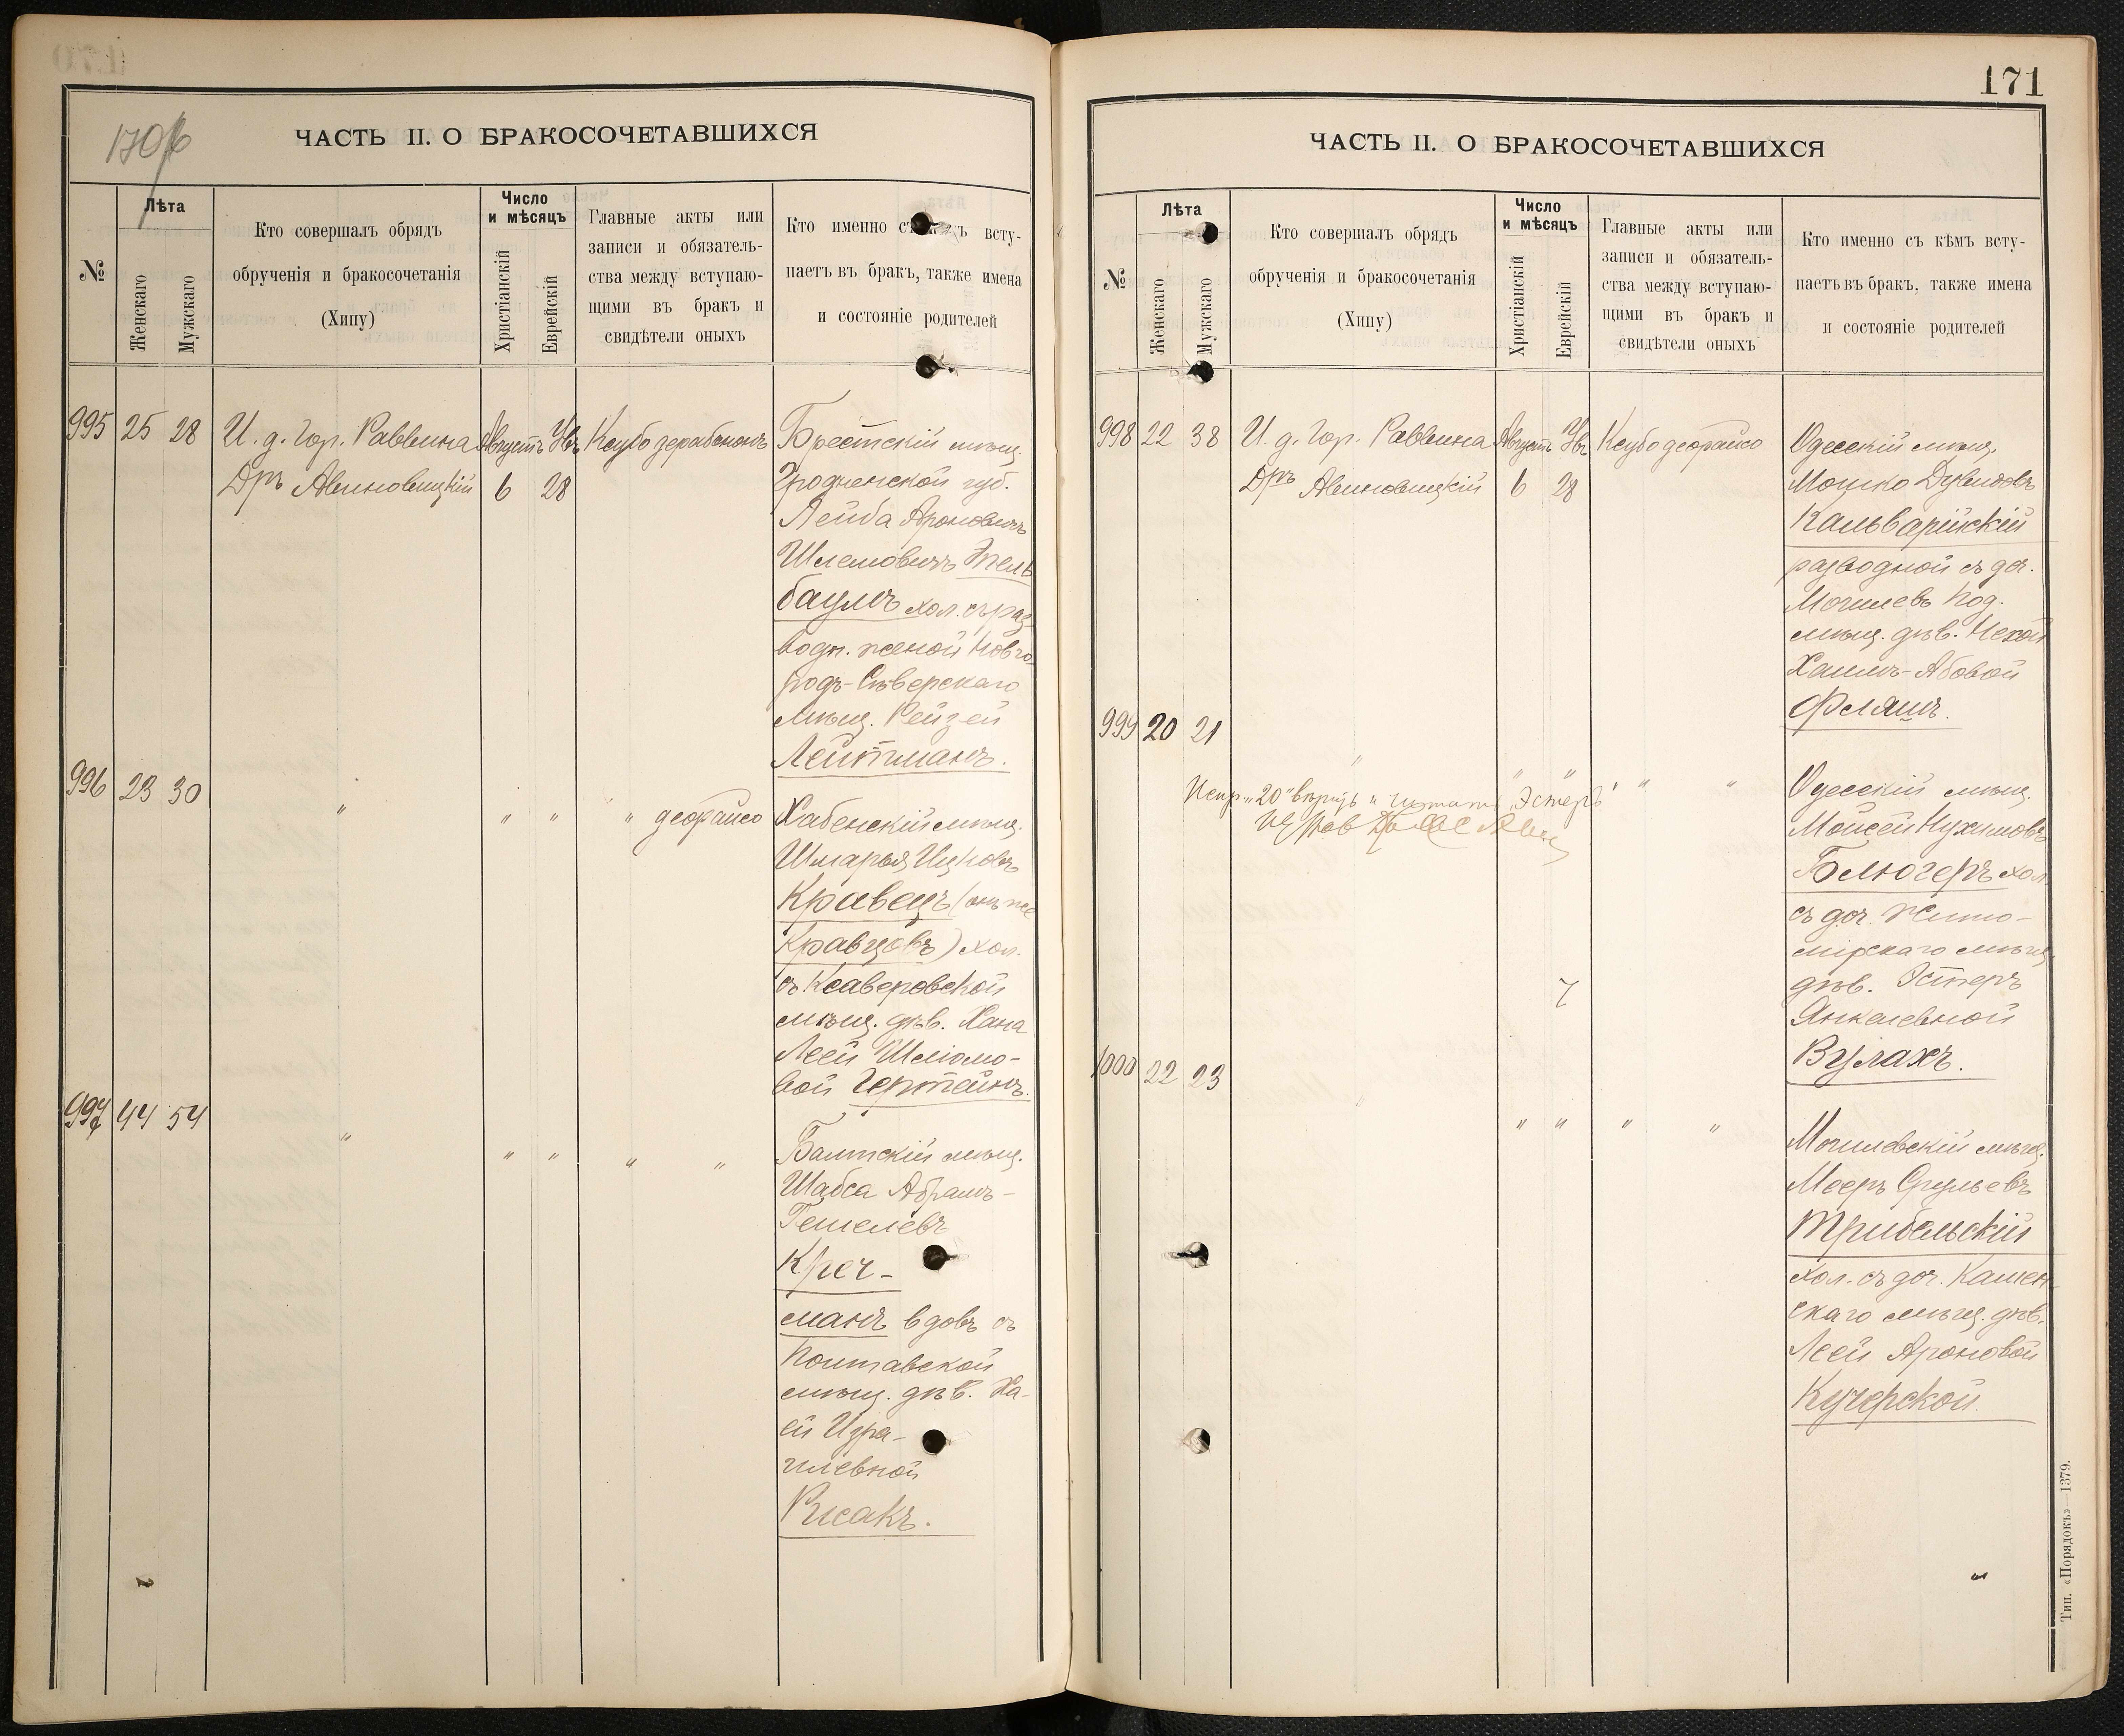 170б
ЧАСТЬ II. О БРАКОСОЧЕТАВШИХСЯ
№
Лѣта
Женскаго
Мужскаго
Кто совершалъ обрядъ
обрученія и бракосочетанія
(Хипу)
Число
и мѣсяцъ
Христіанскій
Еврейскій
Главные акты или
записи и обязатель-
ства между вступаю-
щими въ бракъ и
свидѣтели оныхъ
Кто именно съ всту-
паетъ въ бракъ, также имена
и состояніе родителей
995 25 28 И. д. Гор. Раввина Августъ Увъ Ксубо
Дръ Авиновицкій 6 28
Брестскій мѣщ.
Гродненской губ.
Лейба Ароновичъ
Шлемовичъ Тель
баумъ хол. съ раз-
водн. женой Новго-
родъ-Сѣверскаго
мѣщ. Рейзей
Лейтманъ.
996 23 30 " " " " деорайсо
Хабенскій мѣщ.
Шмарья Ицковъ
Кравецъ (онъ же
Кравцовъ) хол.
съ Ксаверовской
мѣщ. дѣв. Хана
Леей Шліомо-
вой
997 44 54 " " " " "
Балтскій мѣщ.
Шабса Абрамъ-
Гешелевъ
Креч-
манъ вдовъ съ
Полтавской
мѣщ. дѣв. Ха-
ей Изра-
илевной
Рисакъ.
171
ЧАСТЬ II. О БРАКОСОЧЕТАВШИХСЯ
№
Лѣта
Женскаго
Мужскаго
Кто совершалъ обрядъ
обрученія и бракосочетанія
(Хипу)
Число
и мѣсяцъ
Христіанскій
Еврейскій
Главные акты или
записи и обязатель-
ства между вступаю-
щими въ бракъ и
свидѣтели оныхъ
Кто именно съ кѣмъ всту-
паетъ въ бракъ, также имена
и состояніе родителей
998 22 38 И. д. Гор. Раввина Августъ Увъ Ксубо деорайсо
Дръ Авиновицкій 6 28
Одесскій мѣщ.
Мошко Дувидовъ
Кальварійскій
разводной съ доч.
Могилевъ Под.
мѣщ. дѣв. Нехой
Хаимъ-Абовой
Фляшъ.
999 20 21 " " " " "
Испр. "20" вѣрить и читать "Эстеръ"
Одесскій мѣщ.
Мойсей Нухимовъ
Блюгеръ хол.
съ доч. Жито-
мірскаго мѣщ.
дѣв. Эстеръ
Янкелевной
Вулахъ.
7
1000 22 23 " " " " "
Могилевскій мѣщ.
Мееръ Срульевъ
Трибельскій
хол. съ доч. Камен-
скаго мѣщ. дѣв.
Леей Ароновой
Кучерской.
Тип. «Порядокъ»—1379.